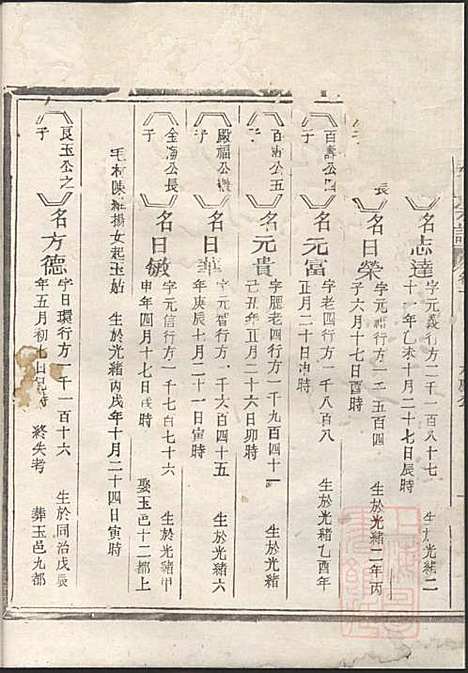 名志達 字元義行方二千一百八十七 生於光緒二
十一年乙未十月二十七日辰時
長
子
名日榮 字元緒行方一千五百四 生於光緒二年丙
子六月十七日寅時
百壽公四
子
名元富 字老四行方一千八百八 生於光緒乙酉年
正月二十日寅時
百壽公五
子
名元貴 字肥老四行方一千九百四十一 生於光緒
己丑年正月二十六日卯時
殿福公
子
名日華 字元智行方一千六百四十五 生於光緒六
年庚辰七月二十一日寅時
金海公長
子
名日敏 字元信行方一千七百七十六 生於光緒甲
申年四月十七日戌時 娶玉邑十二都上
毛村陳 揚女起玉姑 生於光緒丙戌年十月二十四日寅時
良玉公之
子
名方德 字日環行方一千一百十六 生於同治戊辰
年五月初七日 時 終失考 葬玉邑九都